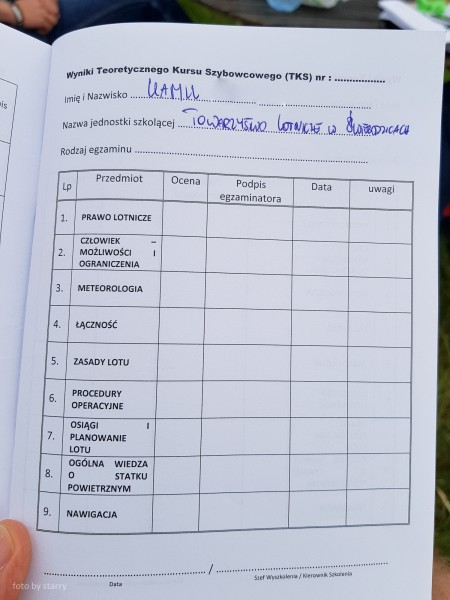 Wyniki Teoretycznego Kursu Szybowcowego (TKS) nr : .................
Imię i Nazwisko KAMIL
Nazwa jednostki szkolącej TOWARZYSTWO LOTNICZE W ŚWIEBODZICACH
Rodzaj egzaminu
Lp Przedmiot Ocena Podpis egzaminatora Data uwagi
1. PRAWO LOTNICZE
2. CZŁOWIEK –
MOŻLIWOŚCI I
OGRANICZENIA
3. METEOROLOGIA
4. ŁĄCZNOŚĆ
5. ZASADY LOTU
6. PROCEDURY
OPERACYJNE
7. OSIĄGI I
PLANOWANIE
LOTU
8. OGÓLNA WIEDZA
O STATKU
POWIETRZNYM
9. NAWIGACJA
/
Data Szef Wyszkolenia / Kierownik Szkolenia
foto by starry